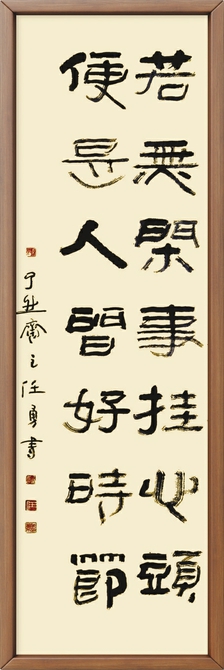 若無閑事挂心頭
便是人間好時節
了無齋主任勇書